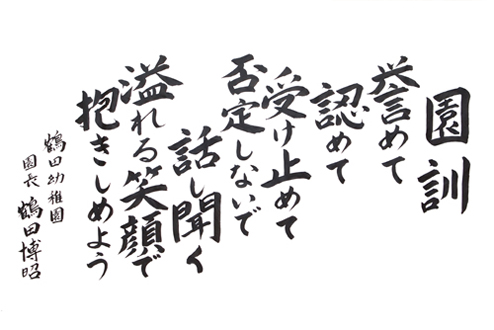 園訓
誉めて
認めて
受け止めて
否定しないで
話し聞く
溢れる笑顔で
抱きしめよう
鶴田幼稚園
園長 鶴田博昭